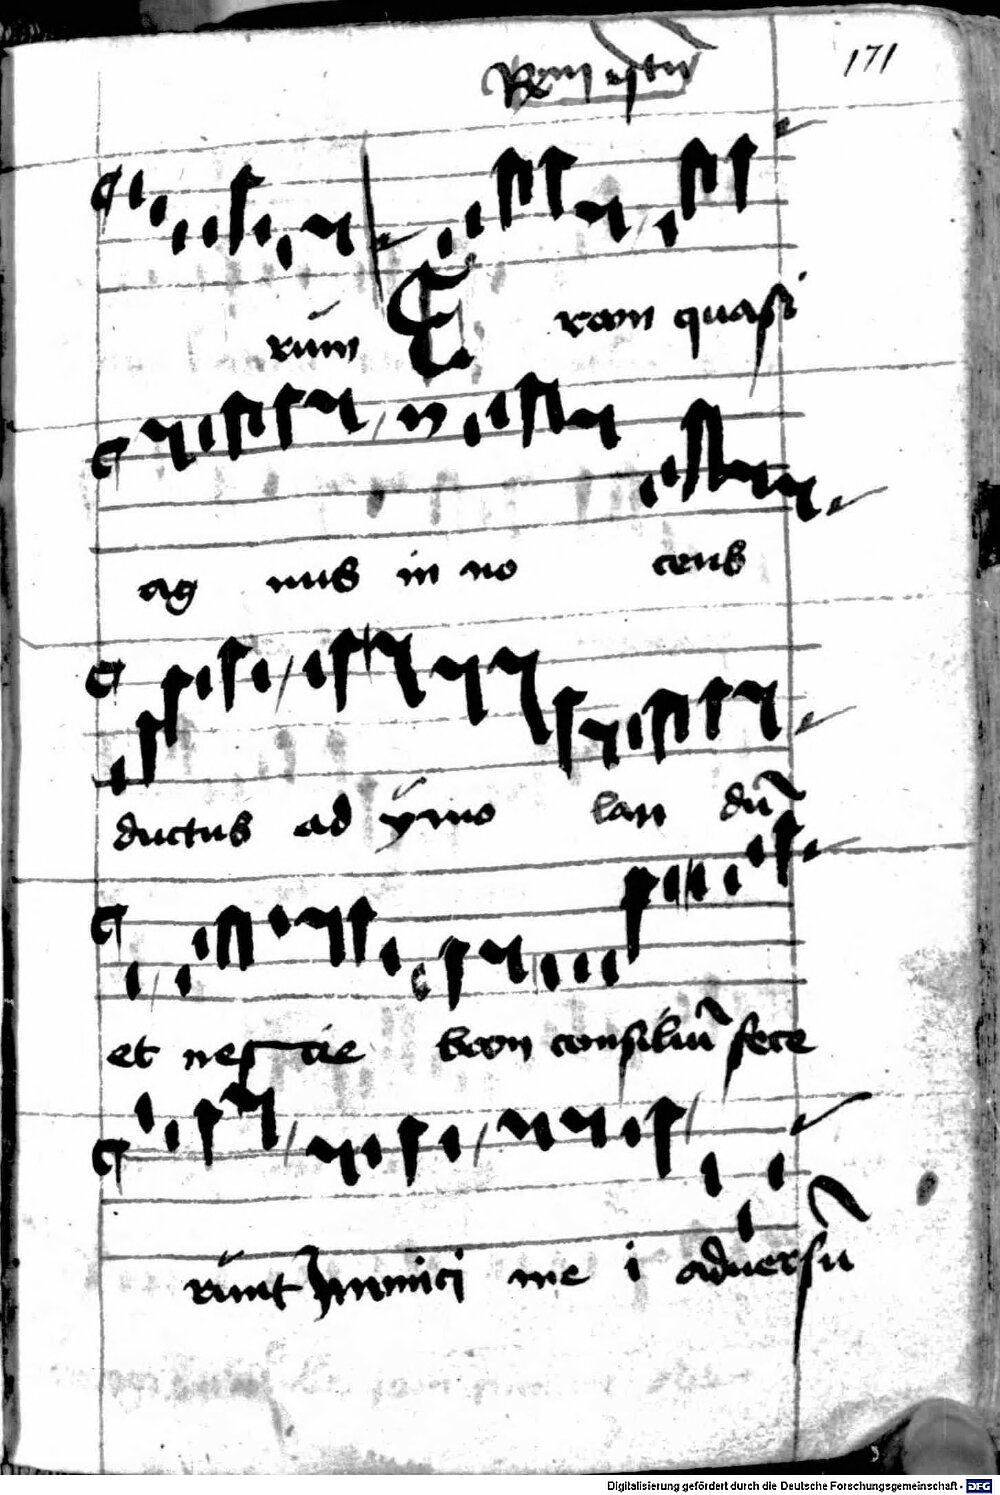 171
rum E ram quasi
ag nus in no cens
ductus ad ymo lan dū
et nes cie bam consiliū fece
runt Inimici me i aduersū
Digitalisierung gefördert durch die Deutsche Forschungsgemeinschaft - DFG